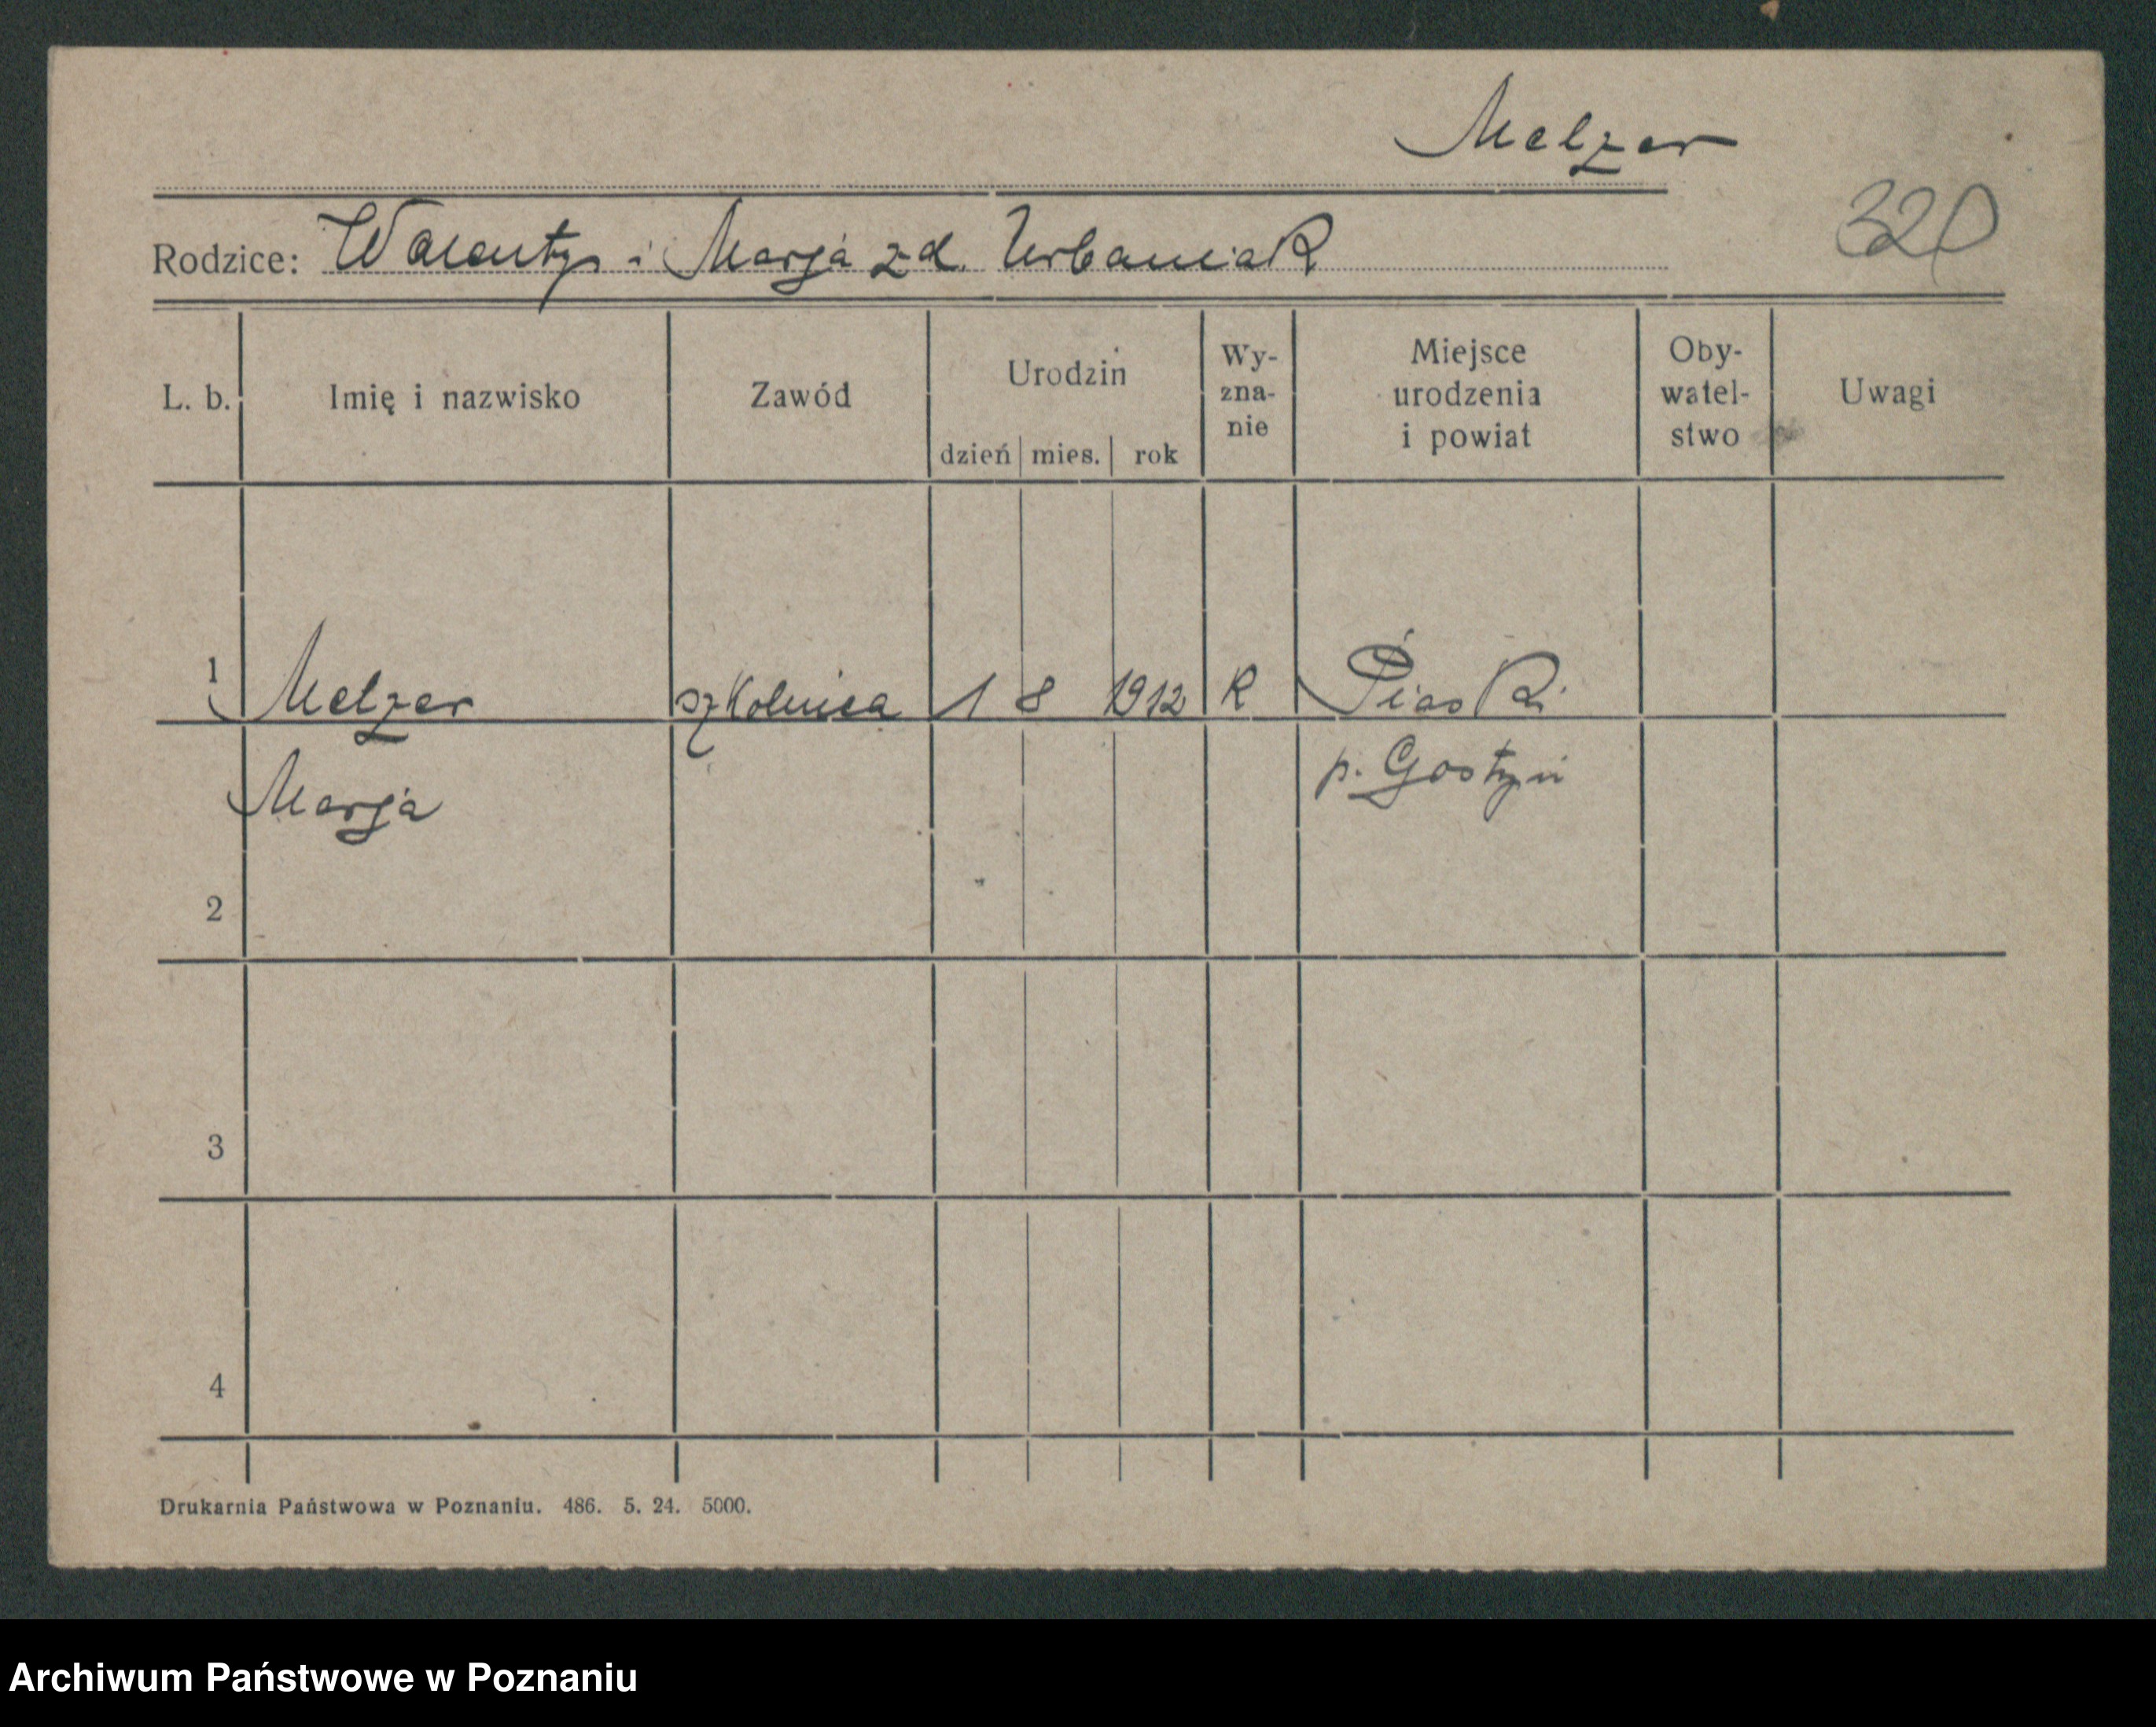 Melzer
320
Rodzice: Walentyn i Marja zd. Urbaniak
L. b. Imię i nazwisko Zawód Urodzin dzień mies. rok Wy-zna-nie Miejsce urodzenia i powiat Oby-watel-stwo Uwagi
1 Melzer szkolnica 1 8 1912 K Piaski
Marja p. Gostyń
2
3
4
Drukarnia Państwowa w Poznaniu. 486. 5. 24. 5000.
Archiwum Państwowe w Poznaniu